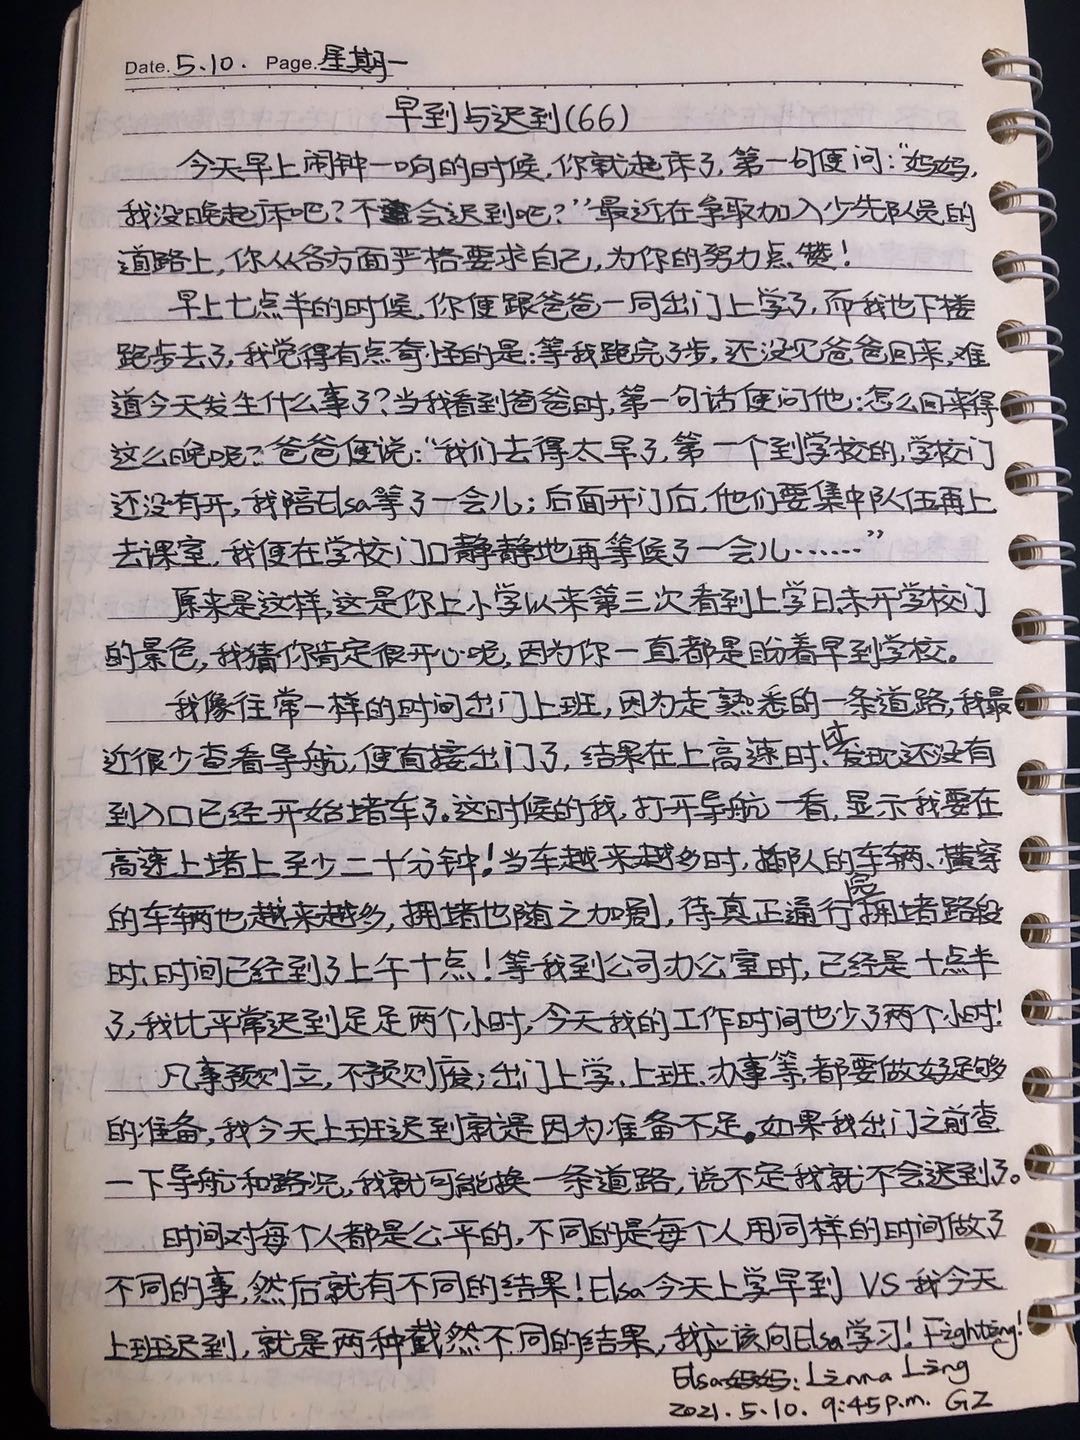 Date. 5.10. Page. 星期一
早到与迟到(66)
今天早上闹钟一响的时候,你就起床了,第一句便问:“妈妈,
我没晚起床吧?不会迟到吧?”最近在争取加入少先队员的
道路上,你从各方面严格要求自己,为你的努力点赞!
早上七点半的时候,你便跟爸爸一同出门上学了,而我也下楼
跑步去了,我觉得有点奇怪的是:等我跑完了步,还没见爸爸回来,难
道今天发生什么事了?当我看到爸爸时,第一句话便问他:怎么回来得
这么晚呢?爸爸便说:“我们去得太早了,第一个到学校的,学校门
还没有开,我陪Elsa等了一会儿;后面开门后,他们要集中队伍再上
去课室,我便在学校门口静静地再等候了一会儿……”
原来是这样,这是你上小学以来第三次看到上学日未开学校门
的景色,我猜你肯定很开心呢,因为你一直都是盼着早到学校。
我像往常一样的时间出门上班,因为走熟悉的一条道路,我最
近很少查看导航,便直接出门了,结果在上高速时,才发现还没有
到入口已经开始堵车了。这时候的我,打开导航一看,显示我要在
高速上堵上至少二十分钟!当车越来越多时,插队的车辆、横穿
的车辆也越来越多,拥堵也随之加剧,待真正通行完拥堵路段
时,时间已经到了上午十点!等我到公司办公室时,已经是十点半
了,我比平常迟到足足两个小时,今天我的工作时间也少了两个小时!
凡事预则立,不预则废;出门上学、上班、办事等,都要做好足够
的准备,我今天上班迟到就是因为准备不足。如果我出门之前查
一下导航和路况,我就可能换一条道路,说不定我就不会迟到了。
时间对每个人都是公平的,不同的是每个人用同样的时间做了
不同的事,然后就有不同的结果!Elsa今天上学早到 VS 我今天
上班迟到,就是两种截然不同的结果,我应该向Elsa学习!Fighting!
Elsa妈妈: Linna Ling
2021.5.10. 9:45p.m. GZ